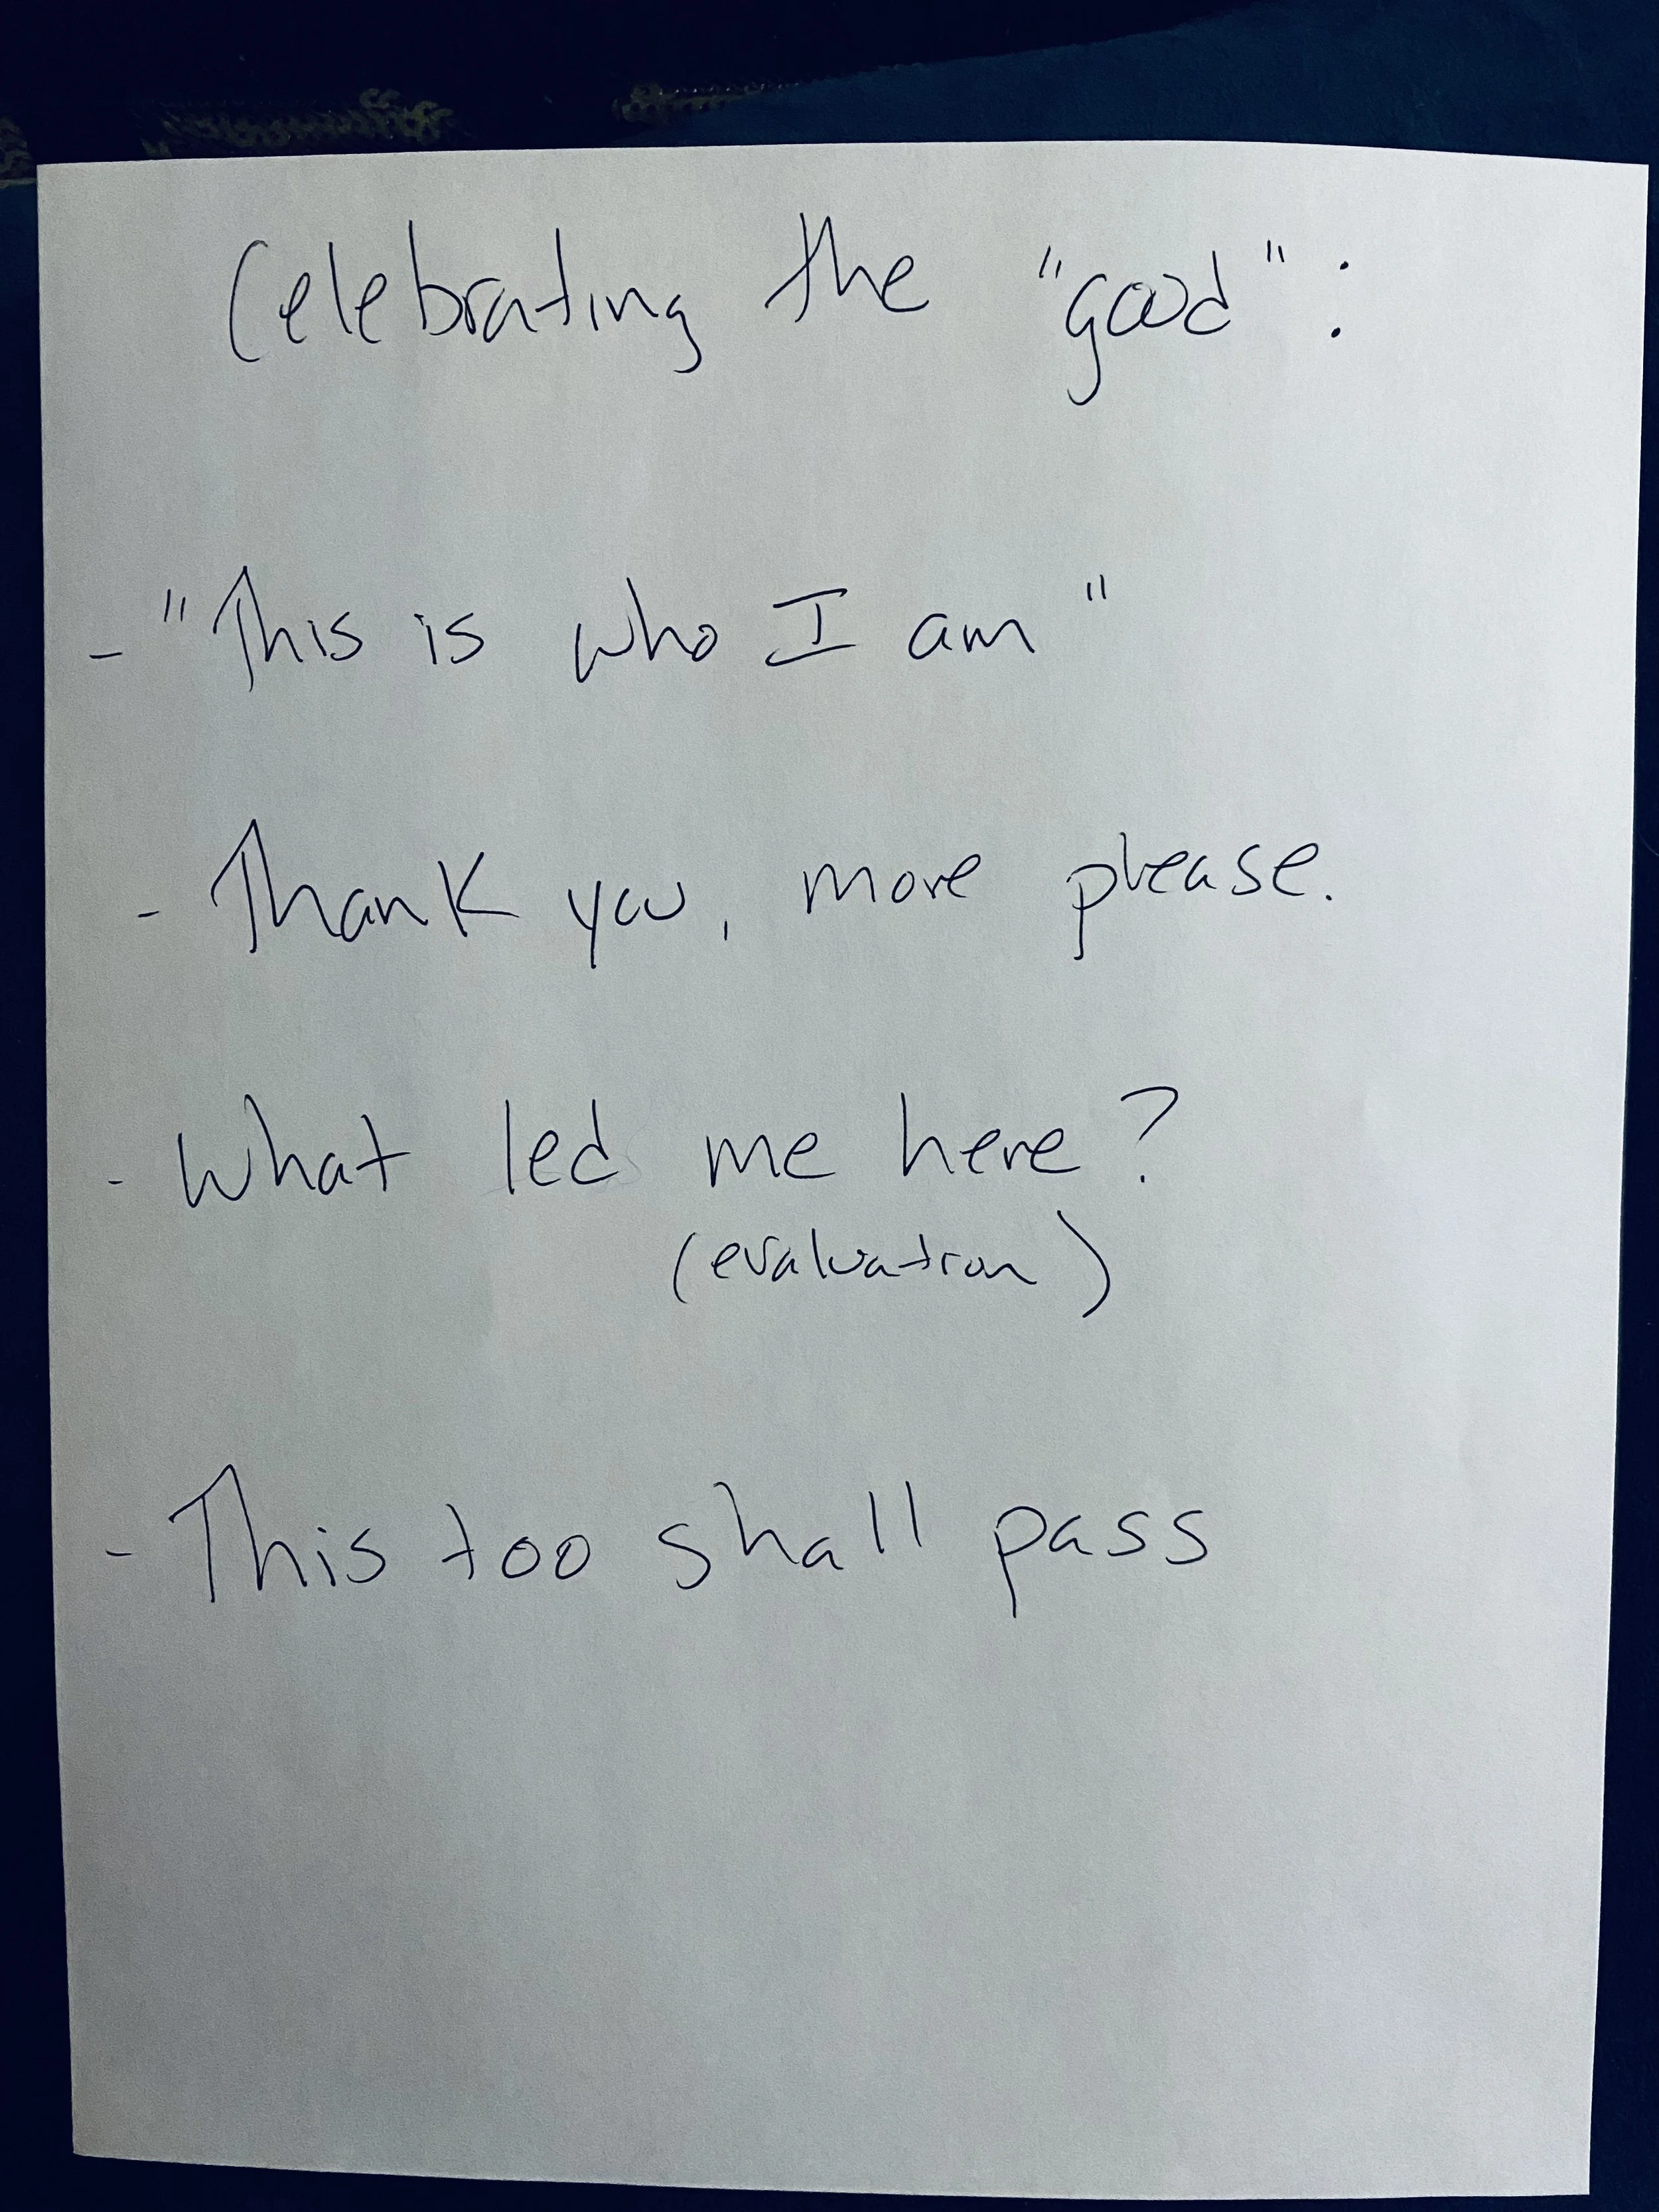 Celebrating the "good":
- "This is who I am"
- Thank you, more please.
- What led me here?
(evaluation)
- This too shall pass